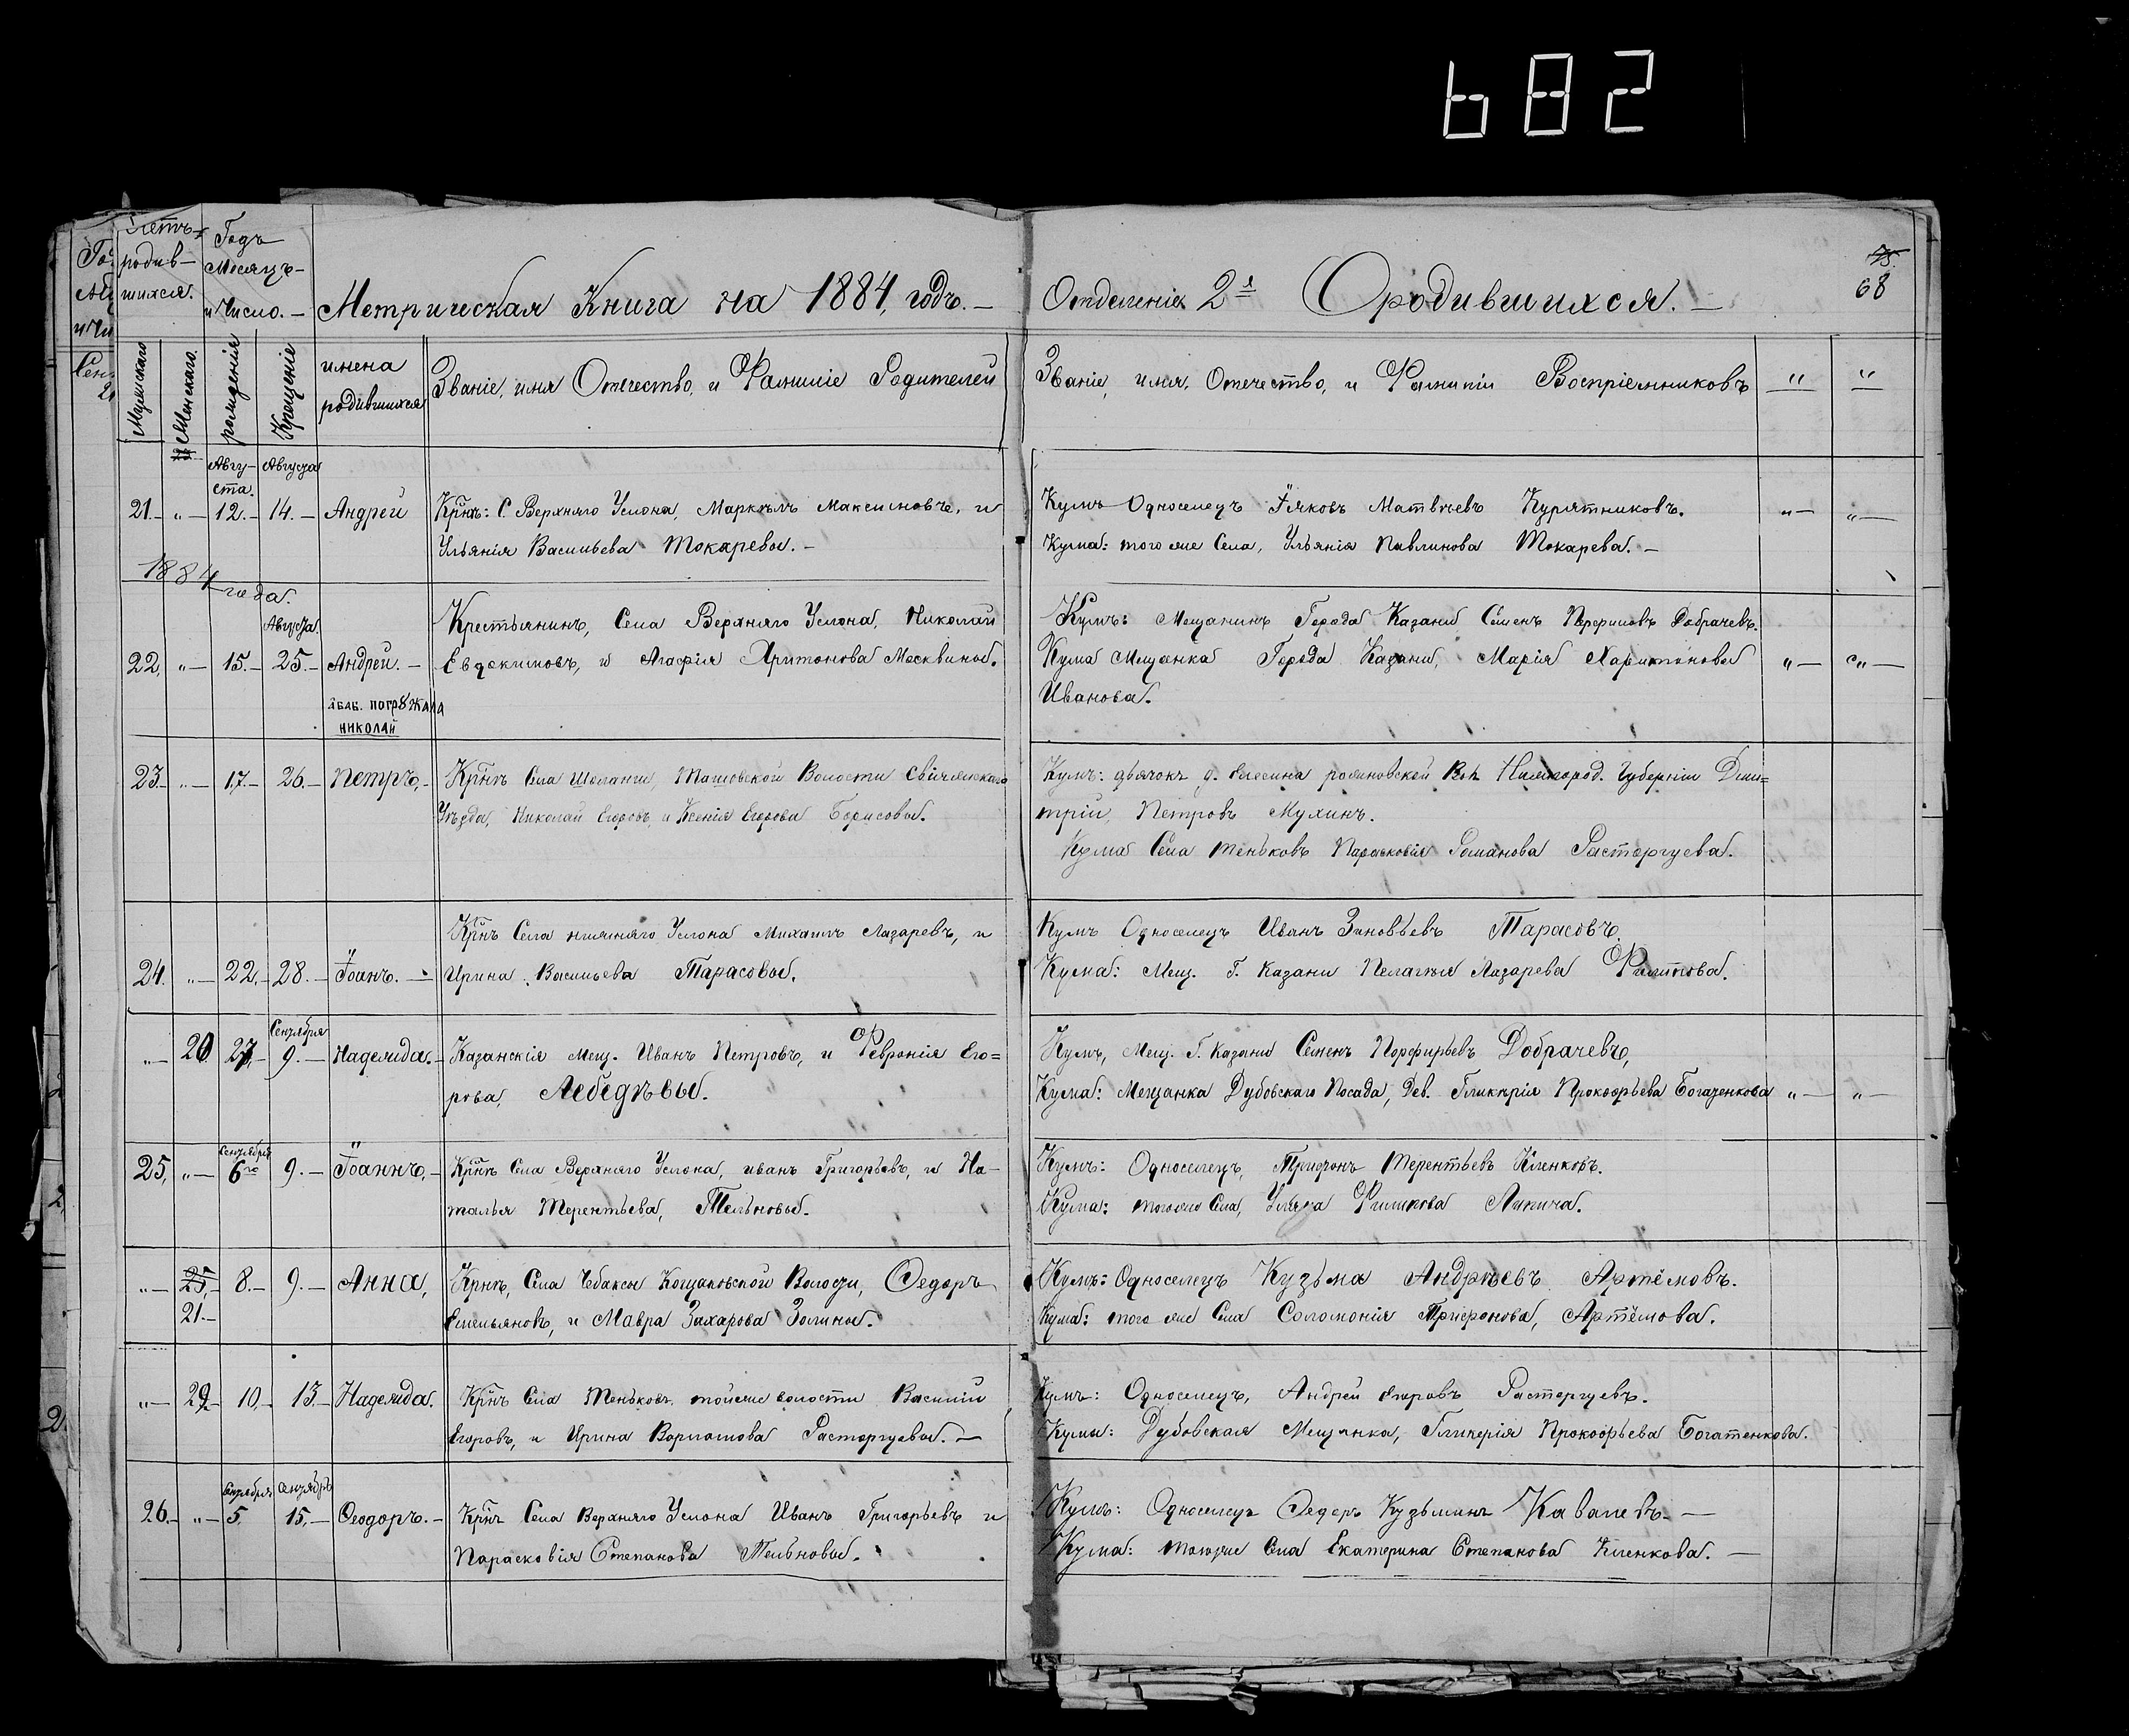 682
Счетъ
родив-
шихся.
Годъ
Месяцъ-
и Число.-
Метрическая Книга на 1884, годъ.-
Отделенія 2я Ородившихся.-
75
68
Мужескаго
Женскаго.
рожденія
Крещеніе
имена
родившихся
Званіе, имя Отечество, и Фамиліе Родителей
Званіе, имя, Отечество, и Фамиліи Воспріемниковъ
Авгу-
ста.
Августа
21.- „- 12.- 14.- Андрей
Крнъ: С. Верхняго Услона, Маркелъ Максимовъ, и
Ульянія Васильева Токаревы.-
Кумъ Односелецъ Яковъ Матвѣевъ Курятниковъ.
Кума: того же Села, Ульянія Павлинова Токарева.-
1884 года.
Августа.
22, „- 15.- 25.- Андрей.-
погрȣжала
николай
Крестьянинъ, Села Верхняго Услона, Николай
Евдокимовъ, и Агафія Аритонова Москвины.
Кумъ: Мещанинъ Города Казани Семенъ Добрачевъ.
Кума Мещанка Города Казани, Марія Харитонова
Иванова.
23.- „- 17.- 26.- Петръ,-
Крнъ Села Шеланги, Ташевской Волости Свіяжскаго
Уѣзда, Николай Егоровъ, и Ксенія Егорова Борисовы.
Кумъ: дьячокъ д. Нижегород. Губерніи Дми=
трій, Петровъ Мухинъ.
Кума Села Теньковъ Парасковія Романова Расторгуева.
24. „- 22,- 28.- Іоанъ.-
Крнъ Села нижняго Услона Михаилъ Лазаревъ, и
Ирина Васильева Тарасовы.
Кумъ Односелецъ Иванъ Зиновьевъ Тарасовъ.
Кума: Мещ. Г. Казани Пелагѣя Лазарева Филипова.
Сентября
„- 20 27,- 9.- Надежда.-
Казанскія Мещ. Иванъ Петровъ, и Февронія Его=
рова, Лебедѣвы.
Кумъ, Мещ. Г. Казани Семенъ Порфирьевъ Добрачевъ,
Кума: Мещанка Дубовскаго Посада, Дев. Гликерія Прокофьева Богатенкова „- „-
Сентября
25, „- 6го 9.- Іоаннъ,-
Крнъ Села Верхняго Услона, иванъ Григорьевъ, и На-
талья Терентьева, Тельновы.
Кумъ: Односелецъ, Трифонъ Терентьевъ Кленковъ.
Кума: тогоже Села, Ульяна Филипова Ляпина.
„- 25,- 8.- 9.- Анна,
21.-
Крнъ, Села Чебаксы Кощаковской Волости, Федоръ
Емельяновъ, и Мавра Захарова Золины.
Кумъ: Односелецъ Кузьма Андрѣевъ Артёмовъ.
Кума: того же Села Соломонія Трифонова, Артёмова.
„- 22- 10,- 13.- Надежда.
Крнъ Села Теньковъ тойже волости Василій
Егоровъ, и Ирина Варламова Расторгуевы.-
Кумъ: Односелецъ, Андрей Егоровъ Расторгуевъ.
Кума: Дубовская Мещанка, Гликерія Прокофьева Богатенкова.
Сентября Сентябрь
26.- „- 5. 15,- Феодоръ.-
Крнъ Села Верхняго Услона Иванъ Григорьевъ и
Парасковія Степанова Тельновы.
Кумъ: Односелецъ Федоръ Кузьминъ Кавалевъ.-
Кума: тогоже Села Екатерина Степанова Кленкова.-